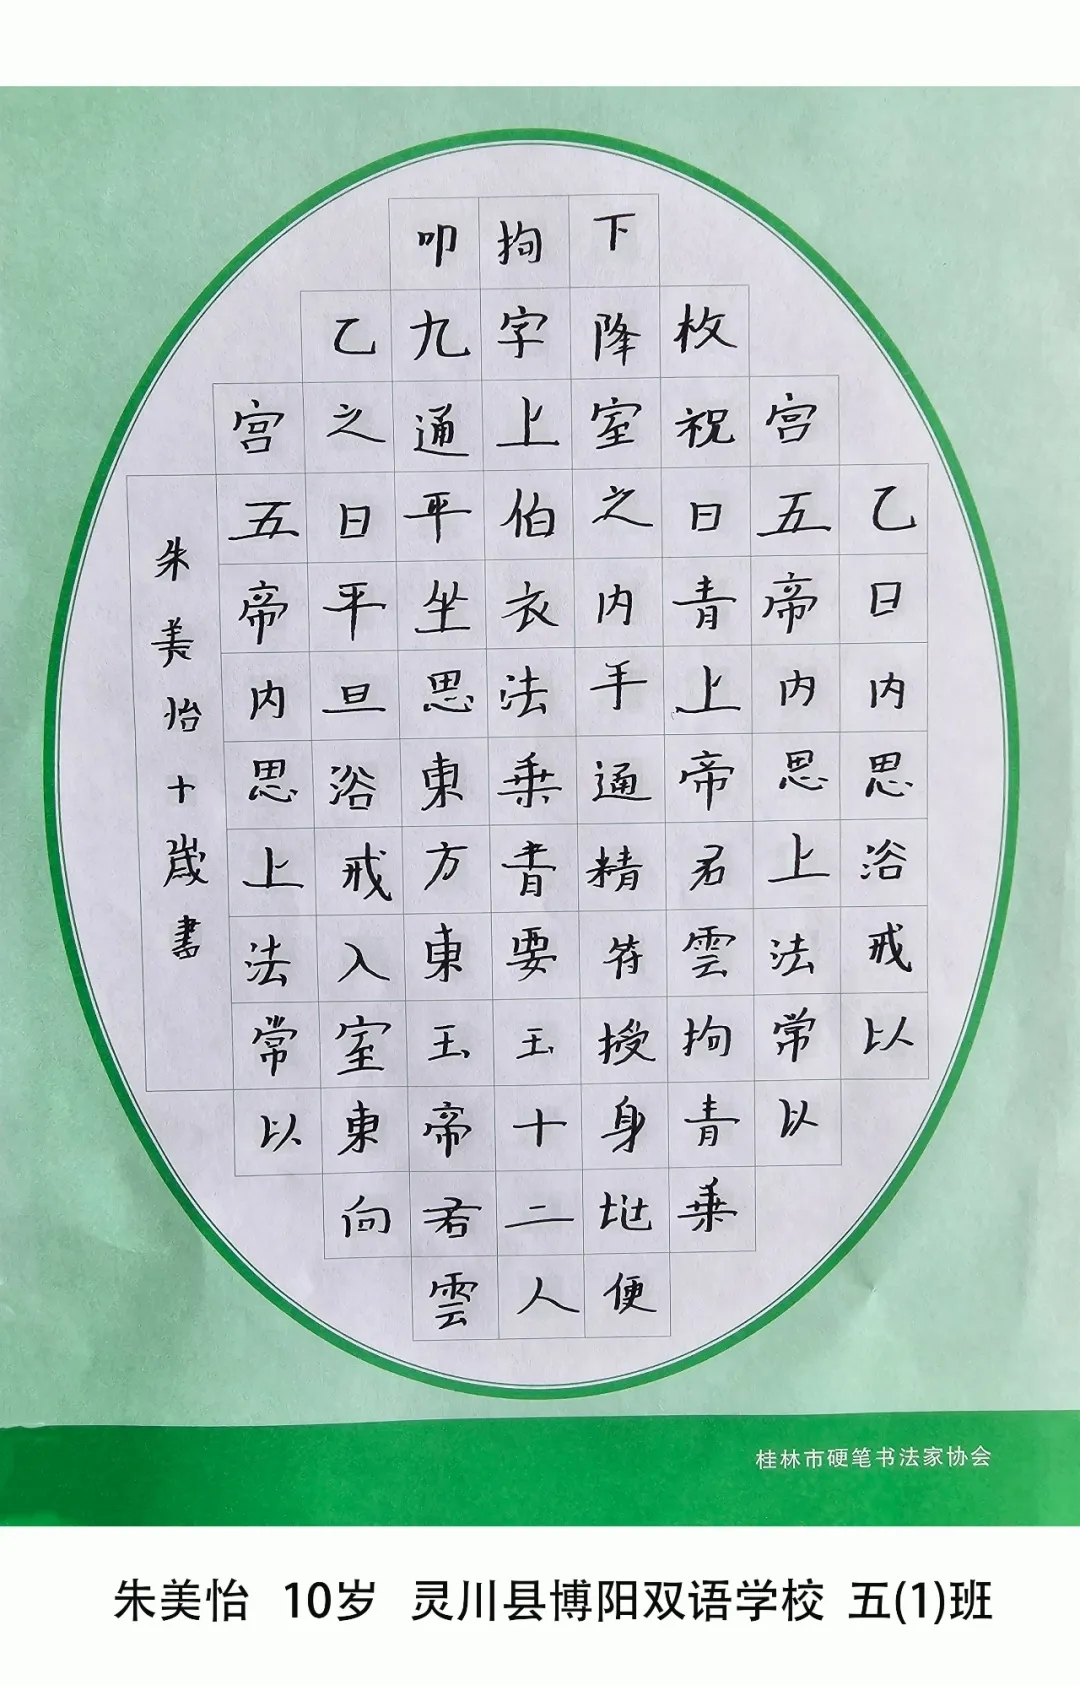 乙日内思浴戒以
宫五帝内思上法常以
枚祝日青上帝君雲拘青乗
下降室之内手通精符授身便
拘字上伯衣法乗青要玉十二人
叩九通平坐思東方東玉帝君雲
乙之日平旦浴戒入室東向
宫五帝内思上法常以
朱美怡十歲書
桂林市硬笔书法家协会
朱美怡 10岁 灵川县博阳双语学校 五(1)班